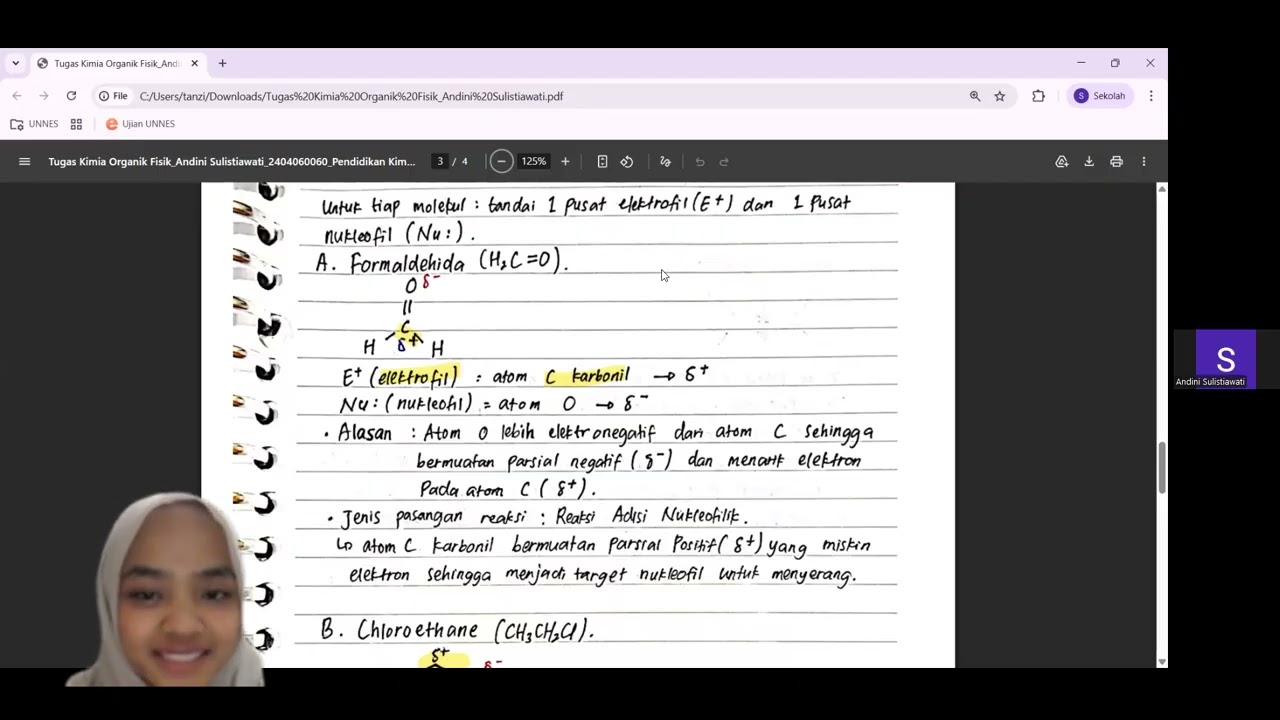 Tugas Kimia Organik Fisik_Andi
C:/Users/tanzi/Downloads/Tugas%20Kimia%20Organik%20Fisik_Andini%20Sulistiawati.pdf
File
Sekolah
S
UNNES
Ujian UNNES
Tugas Kimia Organik Fisik_Andini Sulistiawati_2404060060_Pendidikan Kim...
3 / 4
125%
Untuk tiap molekul : tandai 1 pusat elektrofil (E+) dan 1 pusat
nukleofil (Nu:).
A. Formaldehida (H₂C=O).
O δ-
C
H δ+ H
E+ (elektrofil) : atom C karbonil → δ+
Nu: (nukleofil) = atom O → δ-
• Alasan : Atom O lebih elektronegatif dari atom C sehingga
bermuatan parsial negatif (δ-) dan menarik elektron
Pada atom C (δ+).
• Jenis pasangan reaksi : Reaksi Adisi Nukleofilik.
↳ atom C karbonil bermuatan parsial Positif (δ+) yang miskin
elektron sehingga menjadi target nukleofil untuk menyerang.
B. Chloroethane (CH₃CH₂Cl).
δ+ δ-
S
Andini Sulistiawati